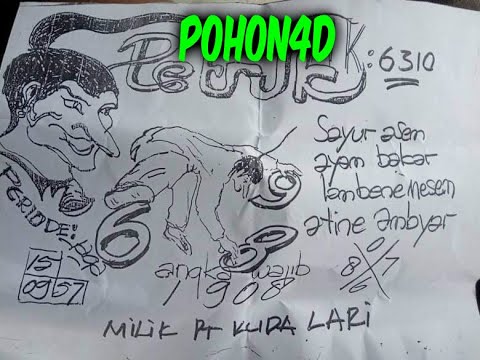 POHON4D
PERAK: 6310
Sayur asem
ayam bakar
lambene mesem
atine ambyar
PERIODE:
6
9
69
0
8 X 7
6
15
09 57
angka wajib
1908
MILIK PT KUDA LARI